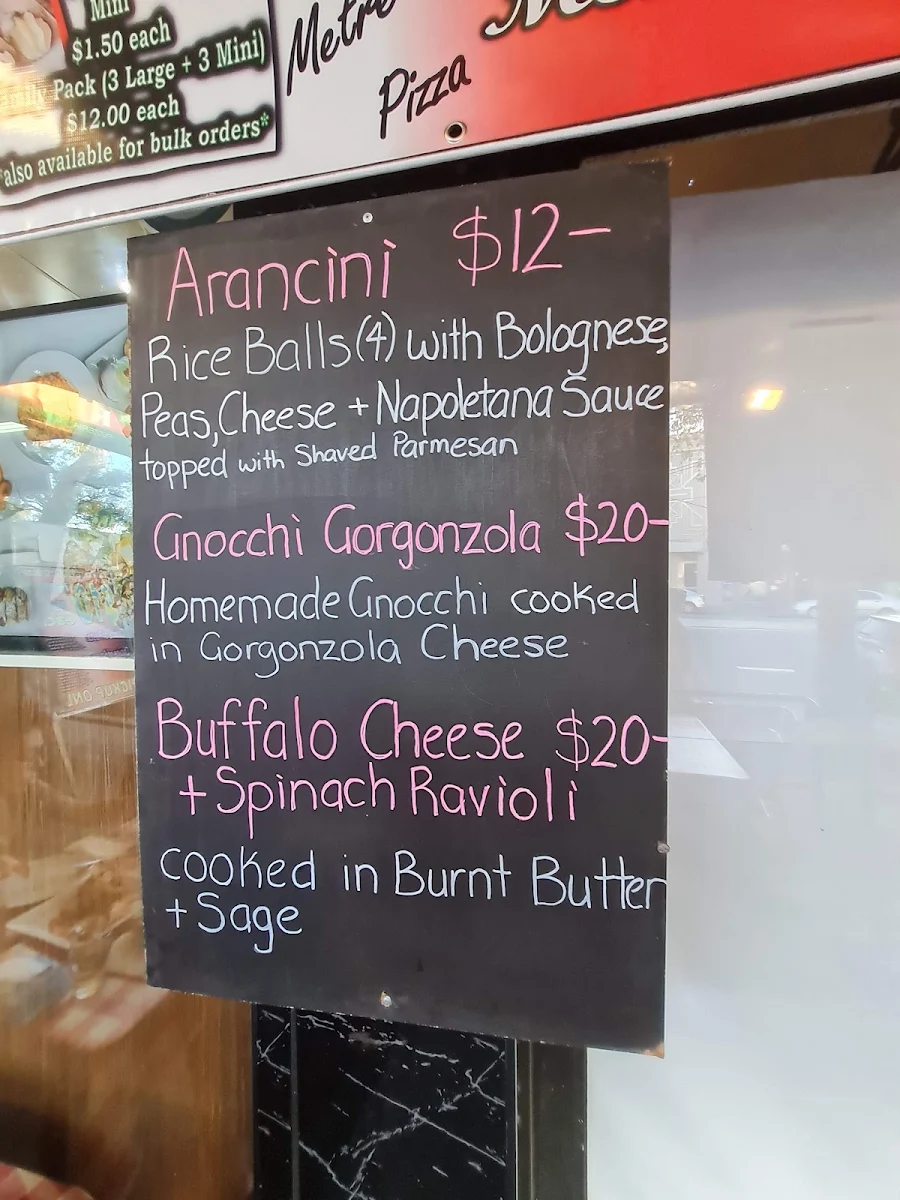 Mini
$1.50 each
Family Pack (3 Large + 3 Mini)
$12.00 each
*also available for bulk orders*
Metro
Pizza
Arancini $12-
Rice Balls(4) with Bolognese,
Peas, Cheese + Napoletana Sauce
topped with Shaved Parmesan
Gnocchi Gorgonzola $20-
Homemade Gnocchi cooked
in Gorgonzola Cheese
Buffalo Cheese $20-
+ Spinach Ravioli
cooked in Burnt Butter
+ Sage